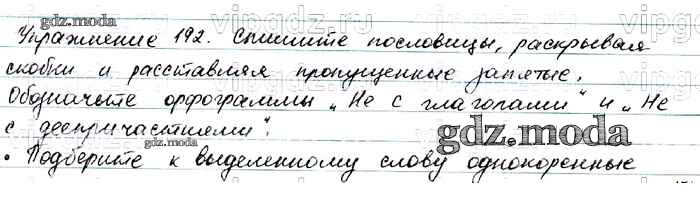 Упражнение 192. Спишите пословицы, раскрывая
скобки и расставляя пропущенные запятые.
Обозначьте орфограммы „Не с глаголами“ и „Не
с деепричастиями“.
• Подберите к выделенному слову однокоренные
gdz.moda
gdz.moda
gdz.moda
gdz.moda
vipgdz.ru